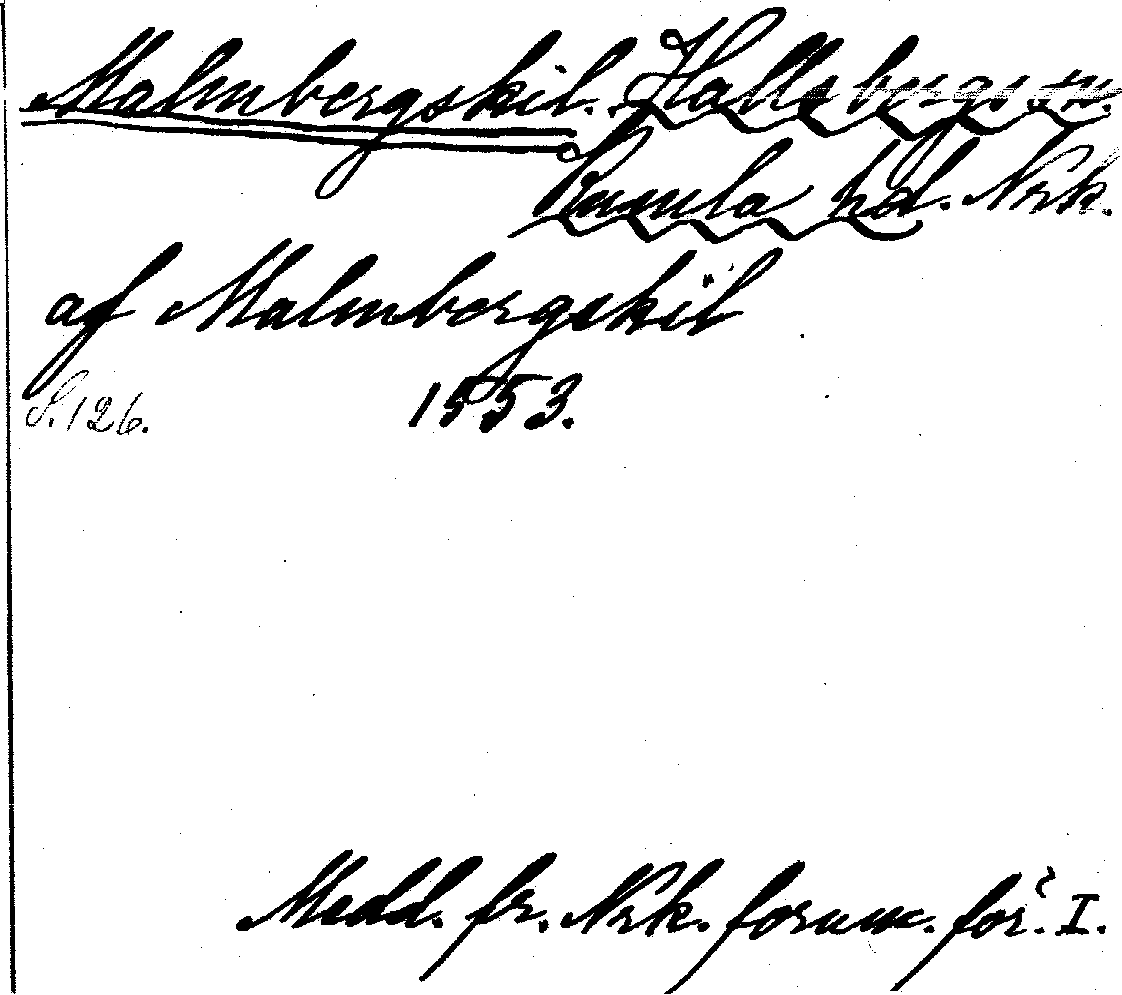 Malmbergskil. Hallsbergs sn.
Kumla hd. Nrk.
af Malmbergskil
S. 126. 1553.
Medd. fr. Nrk. fornm. för. I.